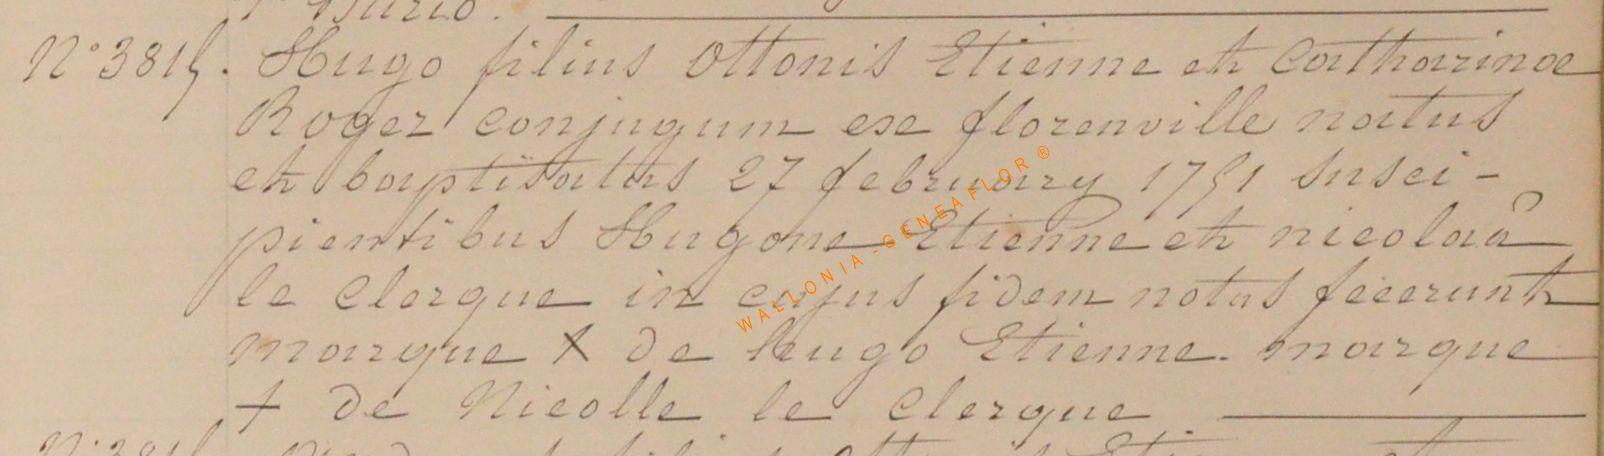 N° 3815. Hugo filius Ottonis Etienne et Catharinae
Roger conjugum ex florenville natus
et baptisatus 27 february 1751 susci-
pientibus Hugone Etienne et nicolaâ
le Clerque in cujus fidem notas fecerunt
marque X de hugo Etienne. marque
+ de Nicolle le Clerque
WALLONIA-GENEAFLOR ®